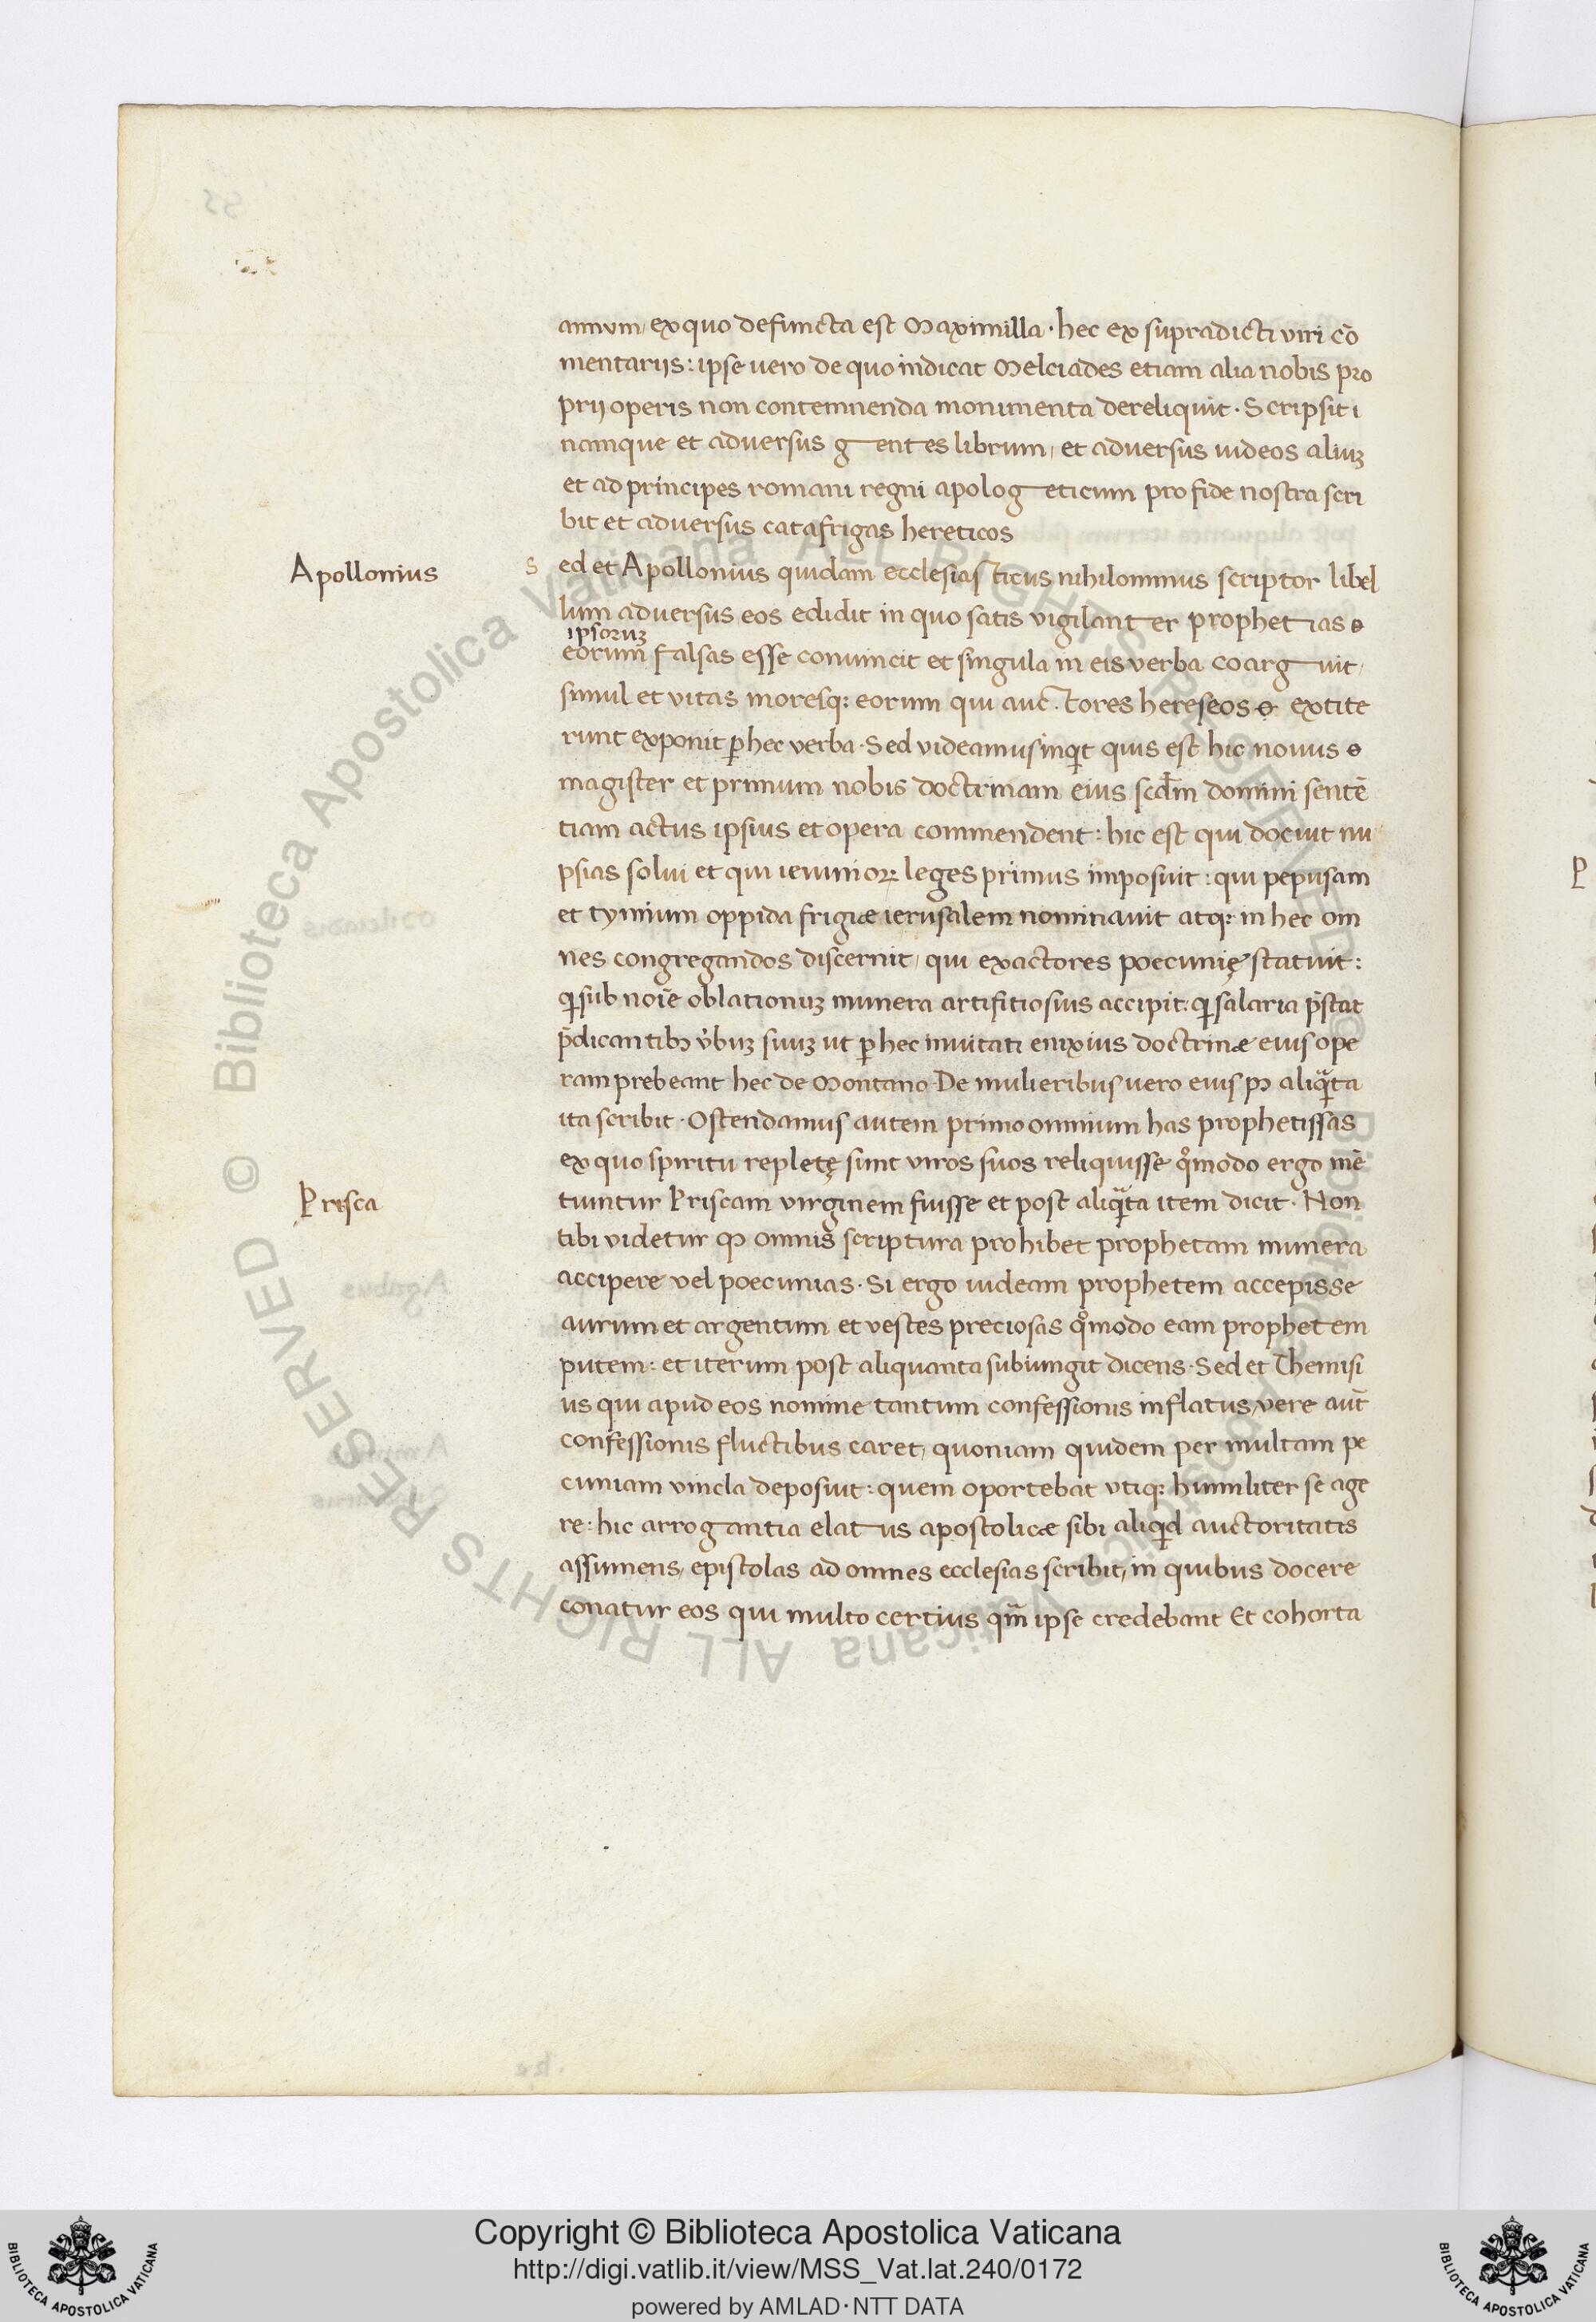 annum, ex quo defuncta est Maximilla · hec ex supradicti viri cō
mentarijs: ipse uero de quo indicat Melciades etiam alia nobis pro
prij operis non contemnenda monimenta dereliquit · Scripsit i
namque et adversus gentes librum, et adversus iudeos aliuꝫ
et ad principes romani regni apologeticum pro fide nostra scri
bit et adversus catafrigas hereticos
Apollonius
Sed et Apollonius quidam ecclesiasticus nihilominus scriptor libel
lum adversus eos edidit in quo satis vigilanter prophetias
ipsoruꝫ
eorum falsas esse conuincit et singula in eis verba coarguit,
simul et vitas moresqꝫ eorum qui auctores hereseos extite
runt exponit ꝑ hec verba · Sed videamus inqͥt quis est hic nouus
magister et primum nobis doctrinam eius scd̄m domini sentē
tiam actus ipsius et opera commendent: hic est qui docuit nu
psias solui et qui ieiunioꝝ leges primus imposuit: qui pepusam
et tymium oppida frigiæ ierusalem nominauit atqꝫ in hec om
nes congregandos discernit, qui exactores poecunię statuit:
qͥ sub noīe oblationuꝫ munera artifitiosius accipit: qͥ salaria p̄stat
p̄dicantibꝫ v̓buꝫ suuꝫ ut ꝑ hec inuitati enixius doctrinæ eius ope
ram prebeant hec de Montano · De mulieribus uero eius pꝰ aliqͣ̄ta
ita scribit · Ostendamus autem primo omnium has prophetissas
ex quo spiritu repletę sunt viros suos reliquisse qͦmodo ergo mē
Prisca
tiuntur Priscam virginem fuisse et post aliqͣ̄ta item dicit · Non
tibi videtur ꝙ omnis scriptura prohibet prophetam munera
accipere vel poecunias · Si ergo uideam prophetem accepisse
aurum et argentum et vestes preciosas qͦmodo eam prophetem
putem: et iterum post aliquanta subiungit dicens · Sed et Themisi
us qui apud eos nomine tantum confessionis inflatus, vere aut̄
confessionis fluctibus caret, quoniam quidem per multam pe
cuniam vincla deposuit: quem oportebat vtiqꝫ humiliter se age
re: hic arrogantia elatus apostolicæ sibi aliqͥd auctoritatis
assumens, epistolas ad omnes ecclesias scribit, in quibus docere
conatur eos qui multo certius qm̄ ipse credebant Et cohorta
© Biblioteca Apostolica Vaticana ALL RIGHTS RESERVED
Copyright © Biblioteca Apostolica Vaticana
http://digi.vatlib.it/view/MSS_Vat.lat.240/0172
powered by AMLAD·NTT DATA
BIBLIOTECA APOSTOLICA VATICANA
BIBLIOTECA APOSTOLICA VATICANA